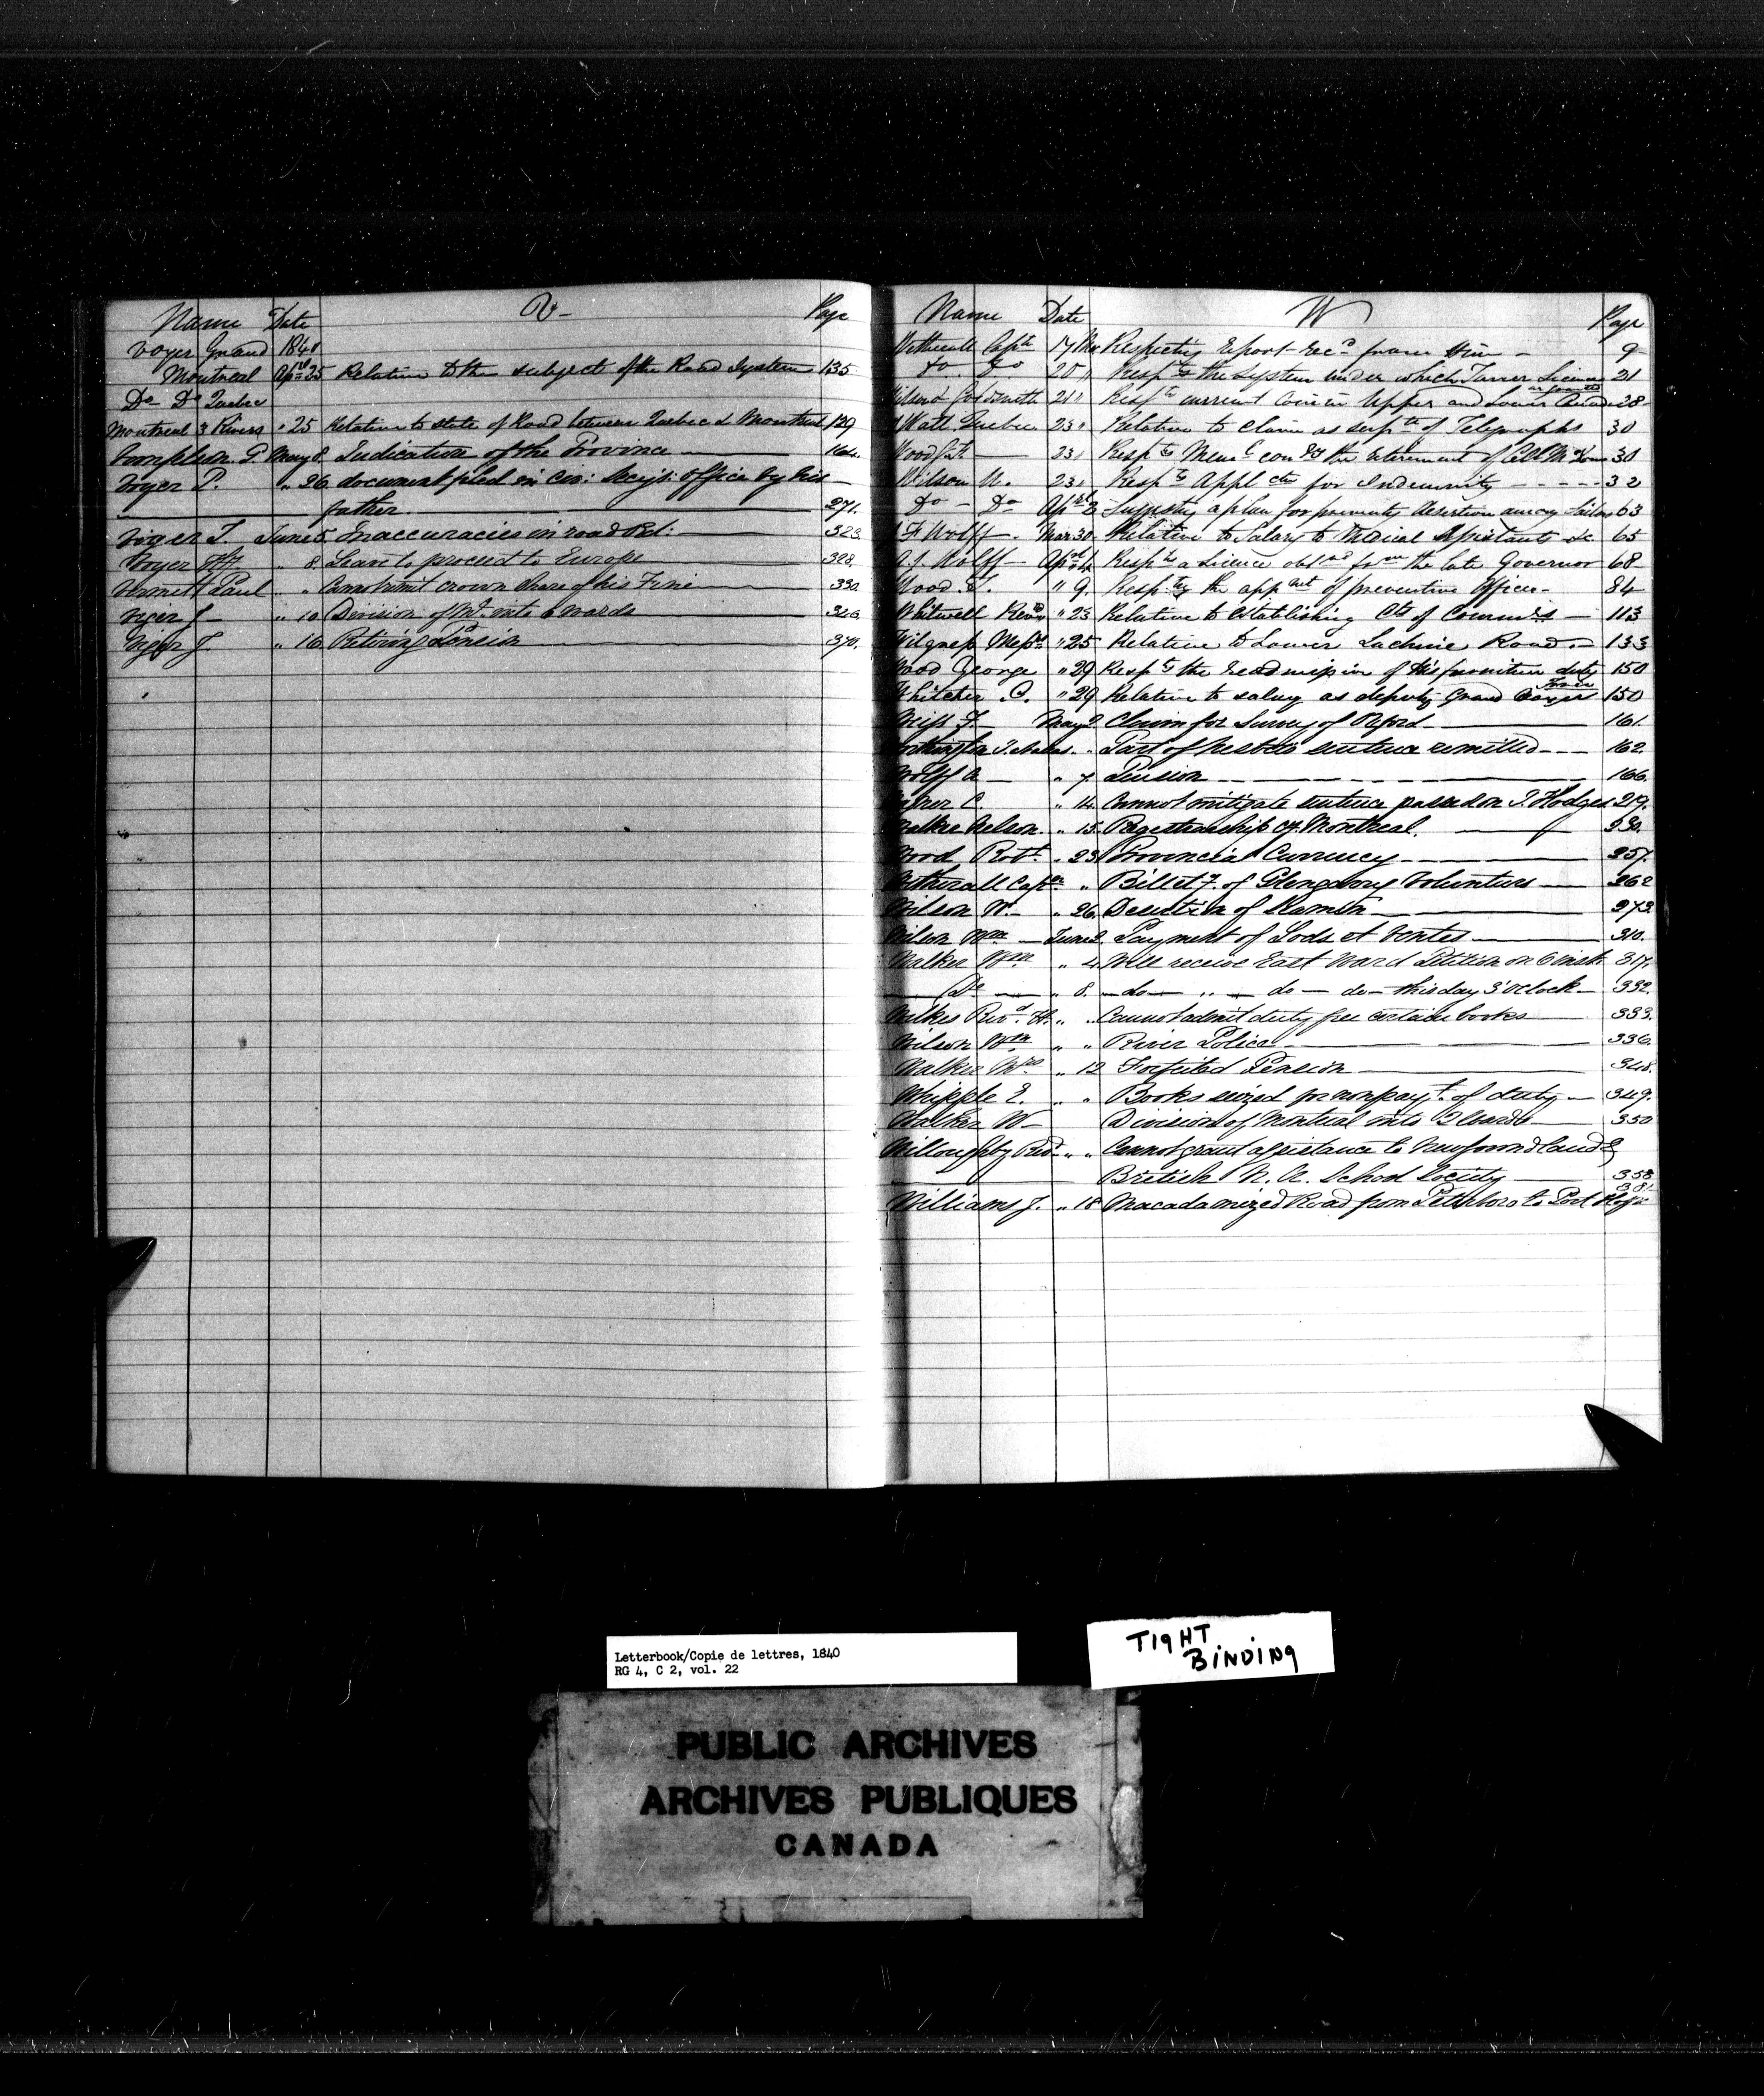 Name Date V- Page
Voyer Grand 1840
Montreal Apl 25 Relative to the subject of the Road System 135
Do Do Quebec
Montreal 3 Rivers " 25 Relative to state of Road between Quebec & Montreal 129
May 8. Indication of the Province 164.
Voyer P. " 26 document filed in Civ: Secy's: Office by his
father. 271.
Viger L. June 5. Inaccuracies in road Bil: 323.
Voyer " 8. Leave to proceed to Europe 328.
Vermett Paul " Cannot remit crown share of his Fine 330.
Viger J " 10 Division of Mtl into 6 wards 340.
Viger J. " 16 Retiring Pension 370.
Name Date W Page
Wetherall Captn 17 Mar Respecting Report recd from Him - 9
Do Do 20 " Respg the System under which Tavern Licences 21
are granted
Wilson & Goldsmith 21 " Respg current Coin in Upper and Lower Canada 28
Watt Quebec 23 " Relative to Claim as supth of Telegraphs 30
Wood 23 " Respg Meml the retirement of Col 30
Wilson W. 23 " Respg Appl ctn for Indemnity ----- 32
Do - Do Apl 2 Suggestg a plan for preventg desertion among Sailors 63
Wolff Mar 30 Relative to Salary to Medical Assistants &c 65
A. J. Wolff Apl 4 Respg a Licence obtnd from the late Governor 68
Wood " 9. Respctg the appnt of preventive Officer - 84
Whitwell Revd " 23 Relative to Establishing Cts of Commrs 113
Wilgress Messrs " 25 Relative to Lower Lachine Road. - 133
Wood George " 29 Respg the readmission of his furniture duty 150
free
Whitcher C. " 29 Relative to salary as deputy Grand Voyer 150
Weiss F. May 2 Claim for Survey of Oxford 161.
Worthington " Part of Nesbitts sentence remitted --- 162.
Wolff A " 7 Pension 166.
C. " 14. Cannot mitigate sentence passed on T. Hodges 219.
Walker Nelson. " 15. Registrarship of Montreal. 230.
Wood, Robt. " 23 Provincial Currency 257.
Wetherall Captn " Billetg. of Glengarry Volunteers 262
Wilson W. " 26. Desertion of Seamen 272.
Wilson Wm June 2. Payment of Lods et Ventes 310.
Walker Wm " 4 Will receive East Ward Petition on 6 inst. 317.
Do " 8. - do - " - do - do - this day 3 'O'Clock - 332.
Wilkes Revd. H. " " Cannot admit duty free certain books 333.
Wilson Wm " " River Police 336.
Walker Wm " 12 Forfeited Pension 348.
Whipple E. " " Books seized for nonpayt. of duty 349.
Walker W - Division of Montreal into Wards 350
Willoughby Revd. " " Cannot grant assistance to Newfoundland &
British N. A. School Society 358
381.
Williams J. " 18 Macadamized Road from Peterboro to Port Hope
Letterbook/Copie de lettres, 1840
RG 4, C 2, vol. 22
TIGHT
BINDING
PUBLIC ARCHIVES
ARCHIVES PUBLIQUES
CANADA